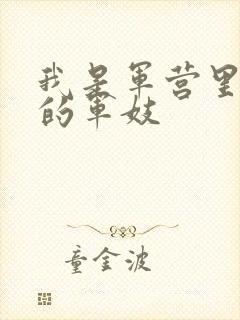 我是军营里
的军妓
童金波